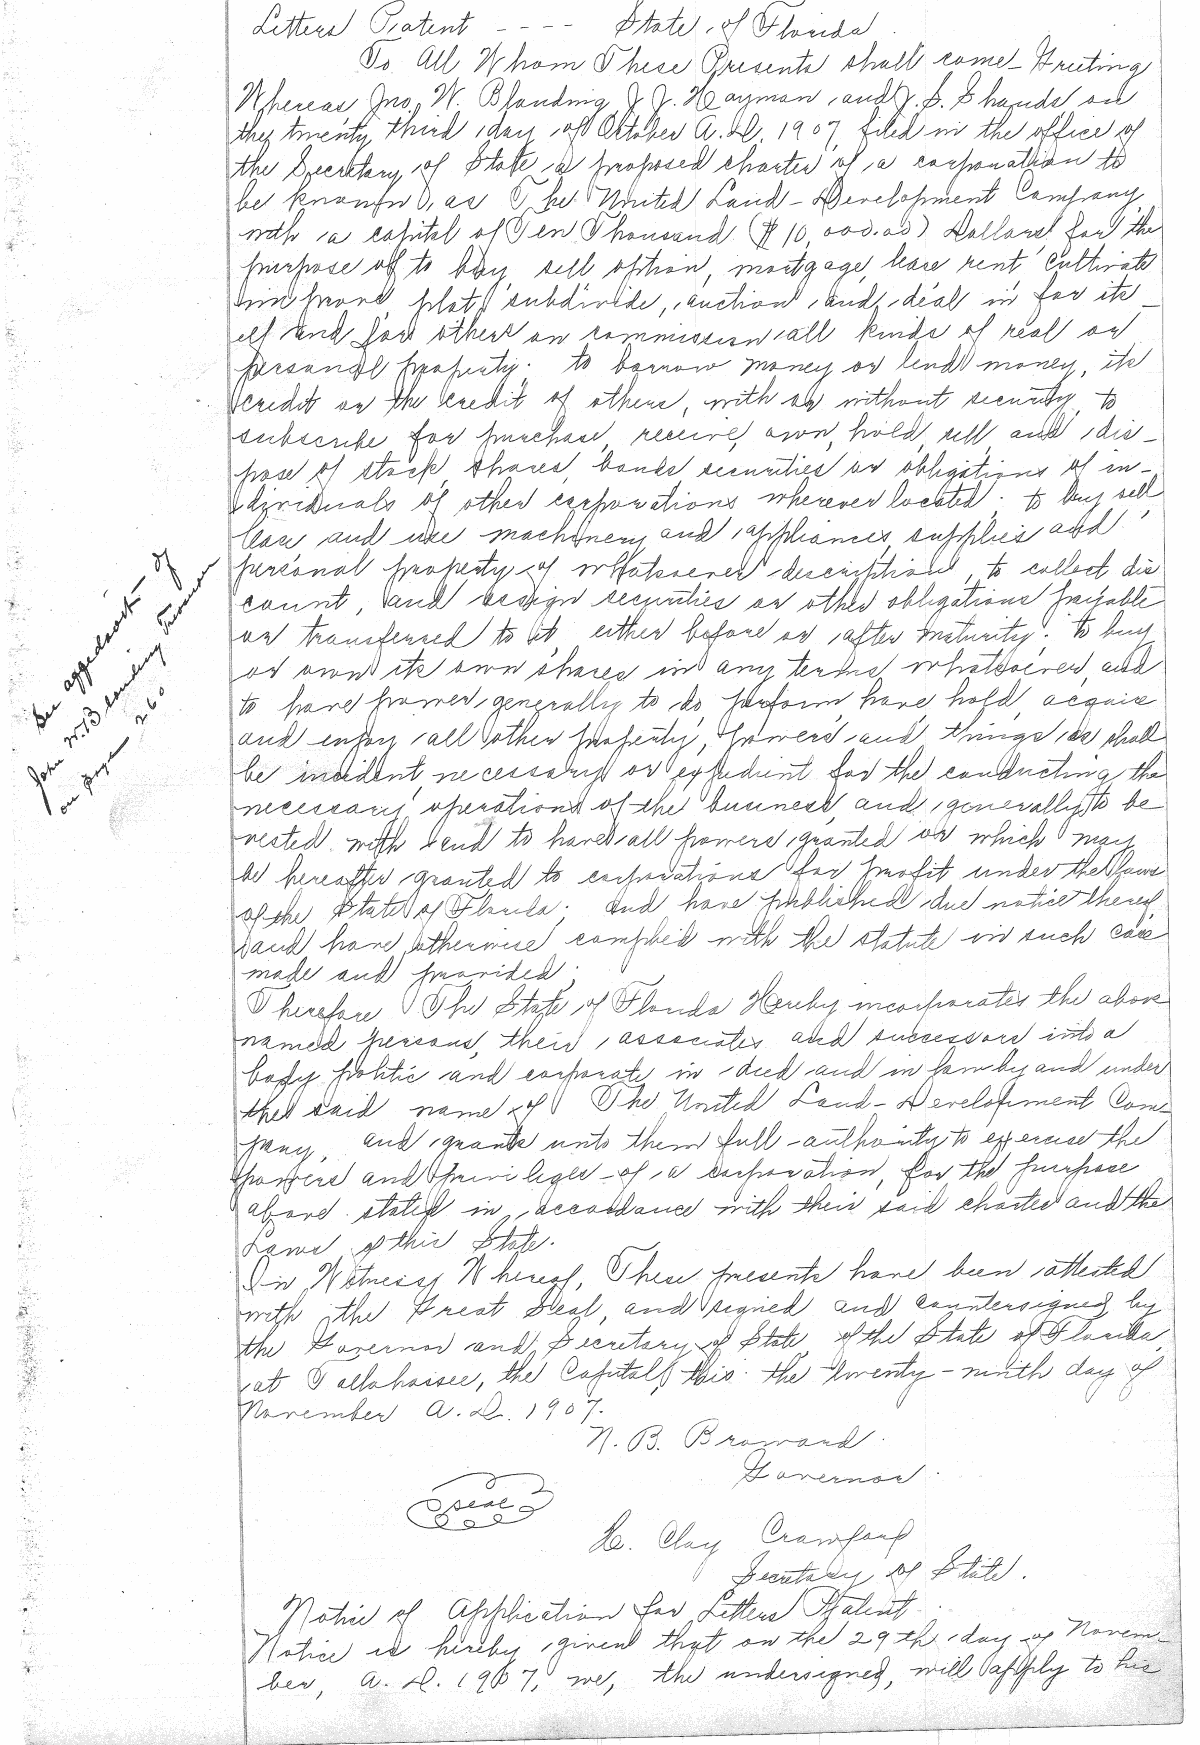 Letters Patent ---- State of Florida
To All Whom These Presents shall come - Greeting
Whereas Jno. W. Blanding J. J. Hayman and J. S. Shands on
the twenty third day of October A.D. 1907, filed in the office of
the Secretary of State a proposed charter of a corporation to
be known as The United Land - Development Company
with a capital of Ten Thousand ($10,000.00) Dollars for the
purpose of to buy, sell, option, mortgage, lease rent cultivate
improve plat, subdivide, auction and deal in for its
elf and for others on commission all kinds of real or
personal property; to borrow money or lend money, its
credit or the credit of others, with or without security, to
subscribe for purchase, receive, own, hold, sell, and dis-
pose of stock, shares, bonds securities or obligations of in-
dividuals of other corporations wherever located; to buy sell,
lease and use machinery and appliances, supplies and
personal property of whatsoever description, to collect dis
count, and assign securities or other obligations payable
or transferred to it either before or after maturity; to buy
or own its own shares in any terms whatsoever, and
to have power generally to do, perform have hold, acquire
and enjoy all other property, powers and things as shall
be incident, necessary or expedient for the conducting the
necessary operations of the business, and generally to be
vested with and to have all powers granted or which may
be hereafter granted to corporations for profit under the laws
of the State of Florida; and have published due notice thereof,
and have otherwise complied with the statute in such case
made and provided;
Therefore The State of Florida Hereby incorporates the above
named persons, their associates and successors into a
body politic and corporate in deed and in law by and under
the said name of The United Land - Development Com-
pany, and grants unto them full authority to exercise the
powers and privileges of a corporation, for the purpose
above stated in accordance with their said charter and the
Laws of this State.
In Witness Whereof, These presents have been attested
with the Great Seal, and signed and countersigned by
the Governor and Secretary of State of the State of Florida,
at Tallahassee, the Capital, this the twenty-ninth day of
November A.D. 1907.
N. B. Broward
Governor
Seal
H. Clay Crawford
Secretary of State.
Notice of Application for Letters Patent
Notice is hereby given that on the 29th day of Novem-
ber, A.D. 1907, we, the undersigned, will apply to his
See affidavit of
John W. Blanding Treasurer
on page 260